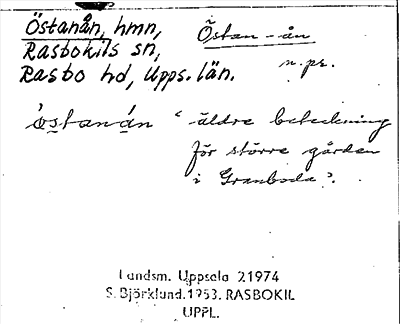 Östanån, hmn,
Rasbokils sn,
Rasbo hd, Upps. län.
Östan-ån
n. pr.
östanán "äldre beteckning
för större gården
i Granboda".
Landsm. Uppsala 21974
S. Björklund. 1953. RASBOKIL
UPPL.